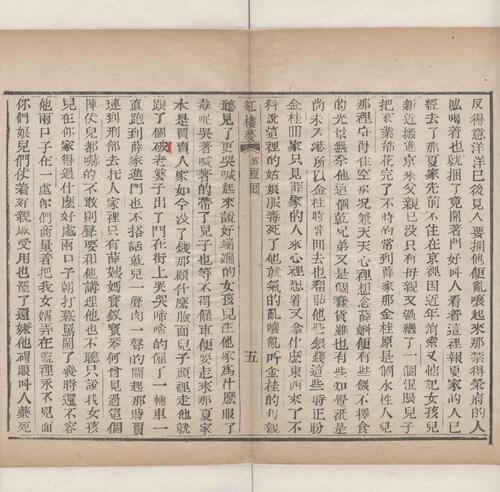 反得意洋洋已後見人要捆他便亂嚷起來那禁得榮府的人
吆喝着也就捆了竟開著門好叫人看着這裡報夏家的人已
經去了那夏家先前不住在京裡因近年消索又惦記女孩兒
新近搬進京來父親已沒只有母親又過繼了一個混賬兒子
把家業都花完了不時的常到薛家那金桂原是個水性人兒
那裡守得住空房况兼天天心裡想念薛蝌便有些饑不擇食
的光景無奈他這個乾兄弟又是個蠢貨雖也有些知覺祇是
尚未入港所以金桂時常回去也帮貼他些銀錢這些時正盼
金桂回家只見薛家的人來心裡想着又拿什麽東西來了不
料說這裡的姑娘服毒死了他就氣的亂嚷亂叫金桂的母親
紅樓夢 第 回 五
聽見了更哭喊起來說好端端的女孩兒在他家爲什麽服了
毒呢哭著喊著的帶了兒子也等不得僱車便要走來那夏家
本是買賣人家如今没了錢那顧什麽臉面兒子頭裡走他就
跟了個破老婆子出了門在街上哭哭啼啼的僱了一輛車一
直跑到薛家進門也不搭話就兒一聲肉一聲的鬧起那時賈
璉到刑部去托人家裡只有薛姨媽寳釵寳琴何曾見過這個
陣仗兒都嚇的不敢則聲要和他講理他也不聽只說我女孩
兒在你家得過什麽好處兩口子朝打暮罵鬧了幾時還不容
他兩口子在一處你們商量着把我女婿弄在監裡永不見面
你們娘兒們仗着好親戚受用也罷了還嫌他碍眼叫人藥死